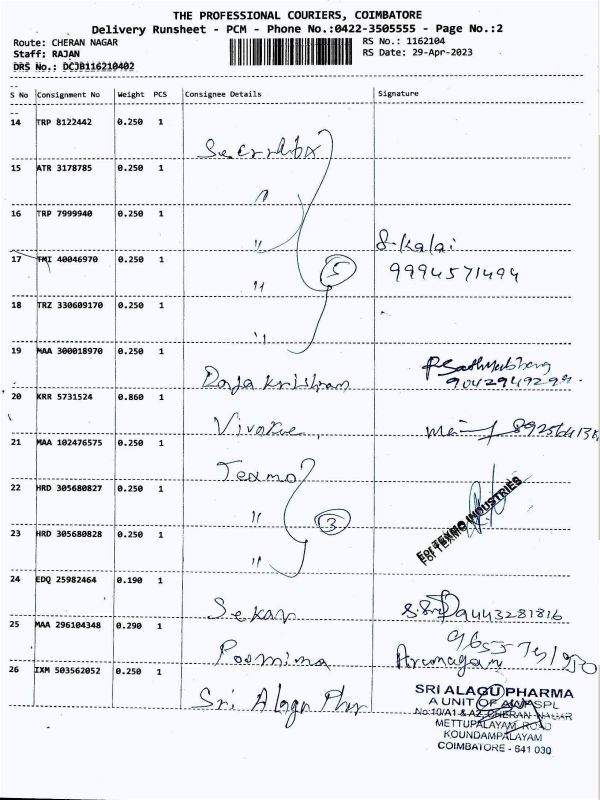 THE PROFESSIONAL COURIERS, COIMBATORE
Delivery Runsheet - PCM - Phone No.:0422-3505555 - Page No.:2
Route: CHERAN NAGAR
RS No.: 1162104
Staff: RAJAN
RS Date: 29-Apr-2023
DRS No.: DCJB116210402
S No Consignment No Weight PCS Consignee Details Signature
14 TRP 8122442 0.250 1
15 ATR 3178785 0.250 1
"
16 TRP 7999940 0.250 1
"
S. Kalai
17 TMI 40046970 0.250 1
5
9994571494
"
18 TRZ 330609170 0.250 1
"
19 MAA 300018970 0.250 1
20 KRR 5731524 0.860 1
21 MAA 102476575 0.250 1
Texmo
22 HRD 305680827 0.250 1
" 3
For TEXMO INDUSTRIES
23 HRD 305680828 0.250 1
"
24 EDQ 25982464 0.190 1
Sekar
9443281816
25 MAA 296104348 0.290 1
Poornima
Arumugam
26 IXM 503562052 0.250 1
Sri Alagu
SRI ALAGU PHARMA
A UNIT OF AWPSPL
No:10/A1 & A2, CHERAN NAGAR
METTUPALAYAM ROAD
KOUNDAMPALAYAM
COIMBATORE - 641 030